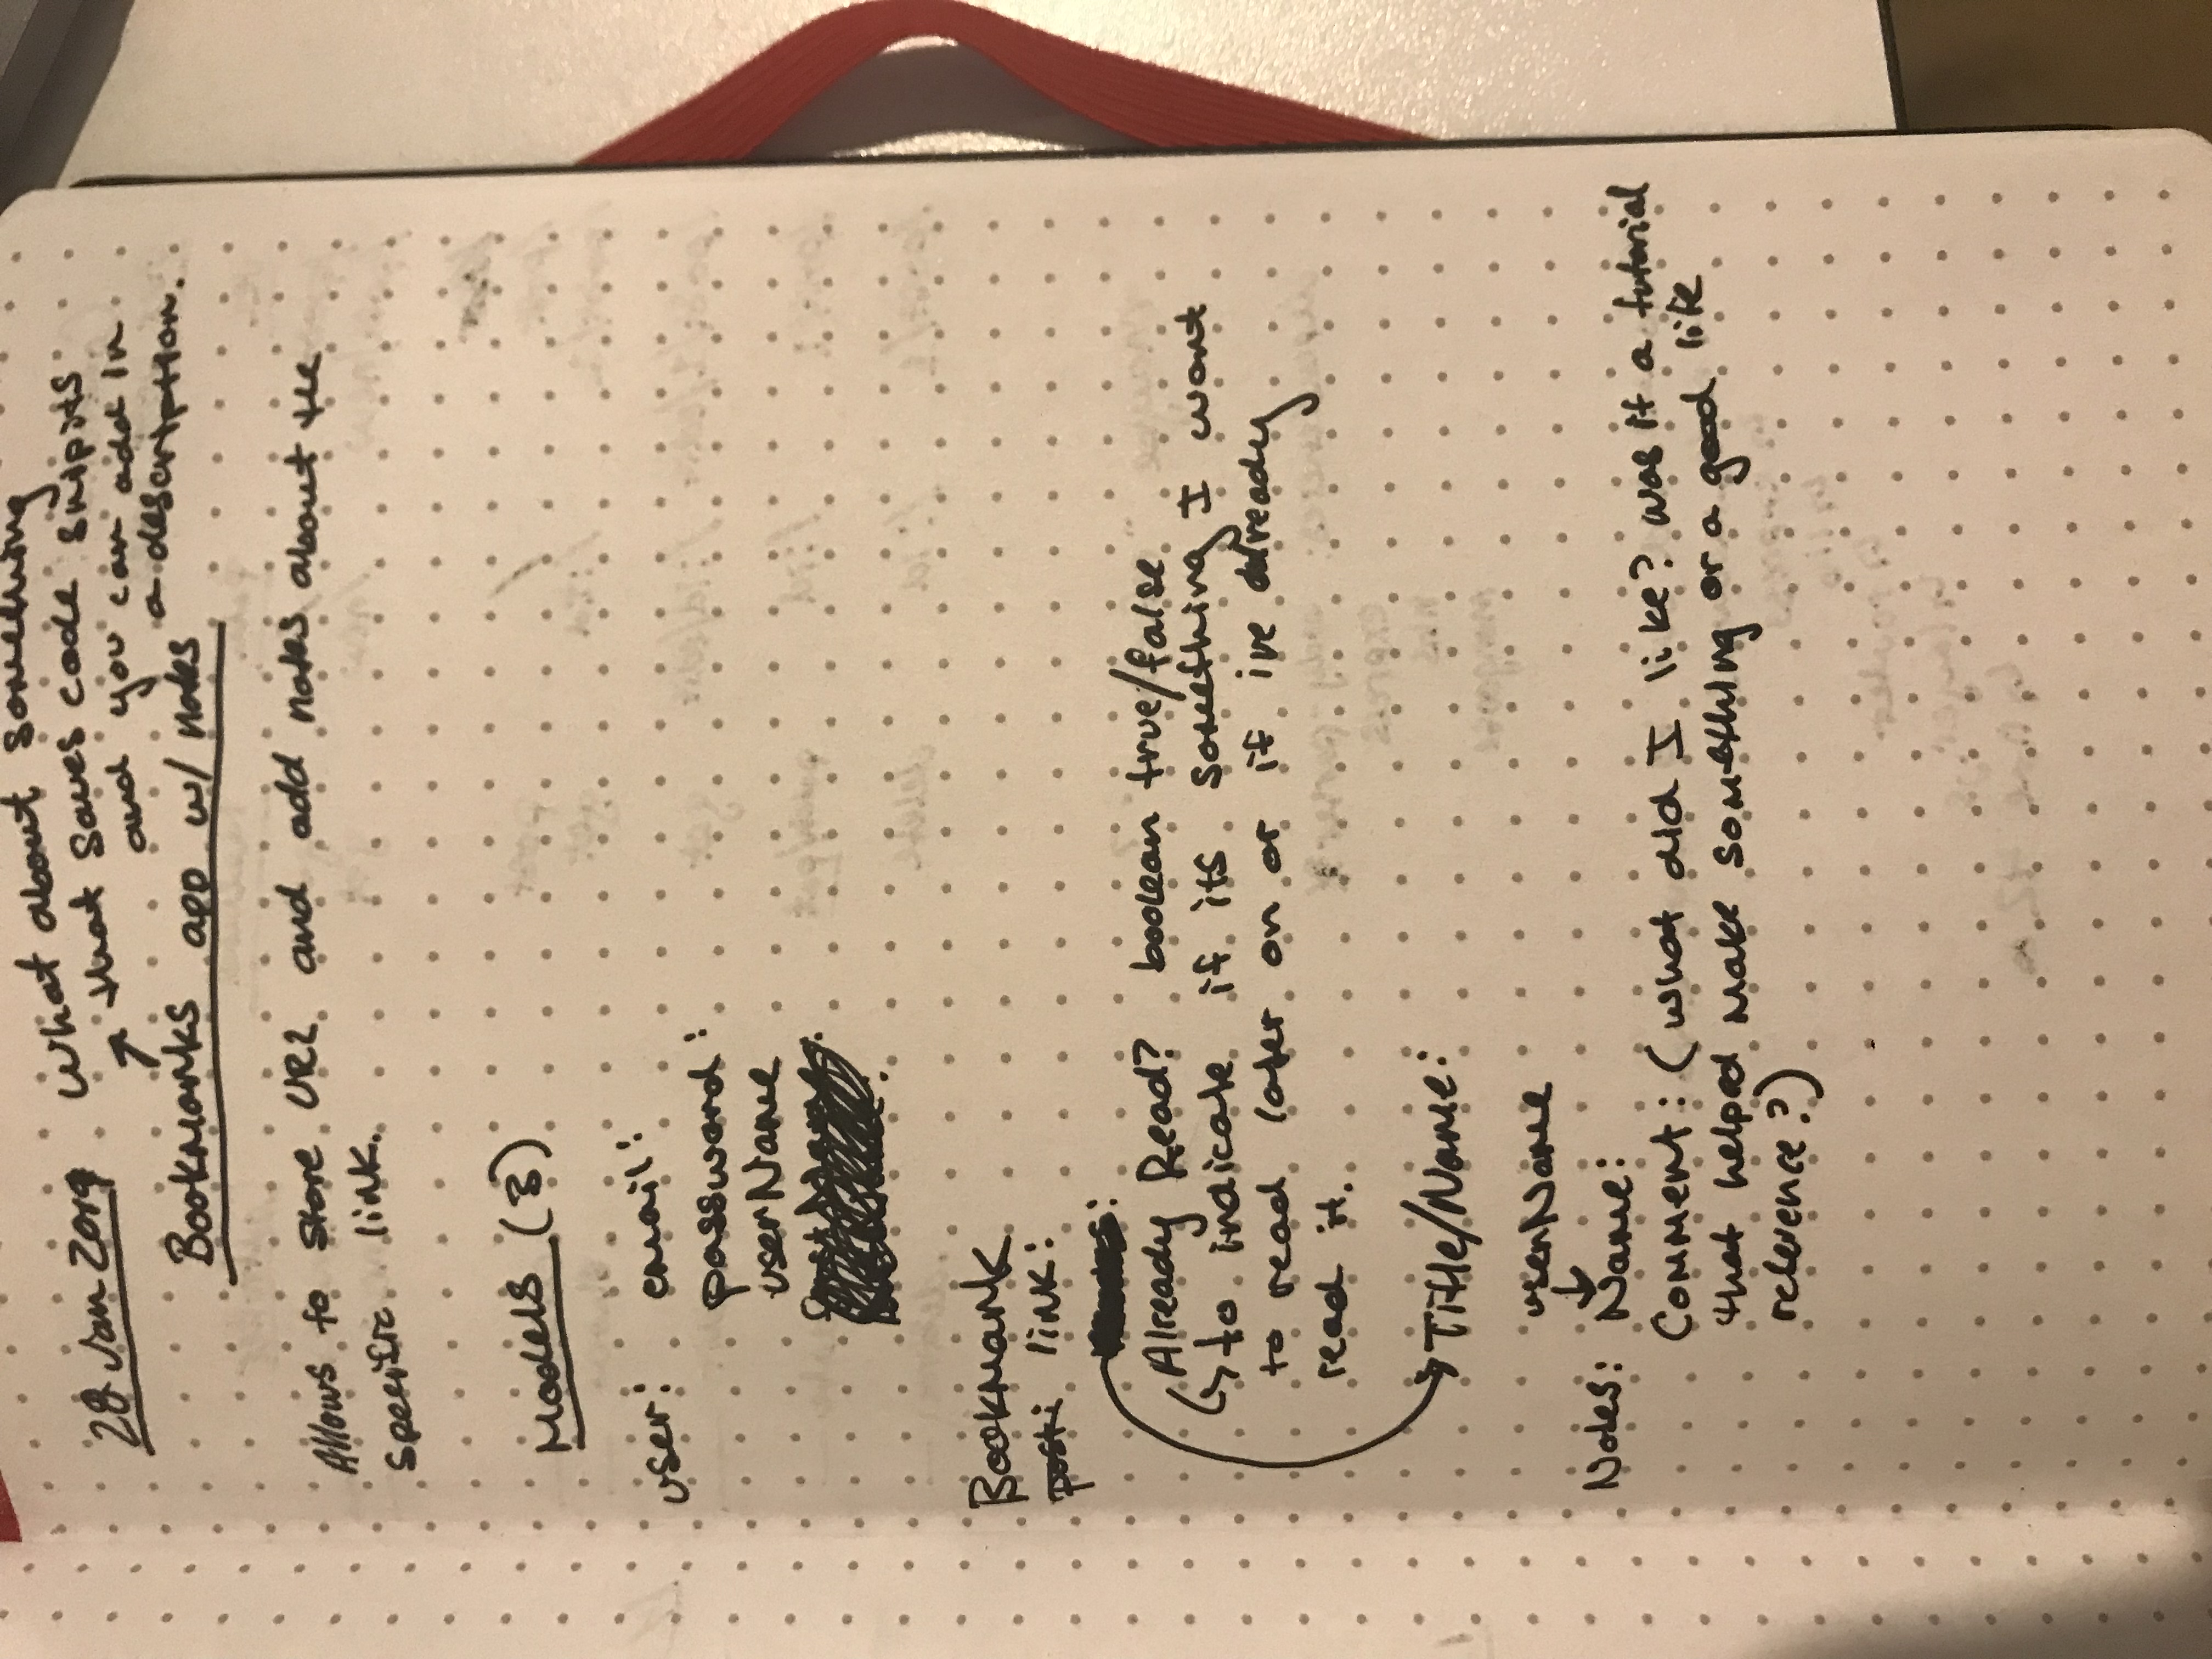 28 Jan 2019
What about something
that saves code snipits
and you can add in
a description.
Bookmarks app w/ notes
Allows to store URL and add notes about the
specific link.
Models (3)
user: email:
password:
userName
Bookmark
post: link:
Already Read? boolean true/false
to indicate if its something I want
to read later on or if ive already
read it.
Title/Name:
userName
Notes: Name:
Comment: (what did I like? was it a tutorial
that helped make something or a good life
reference?)